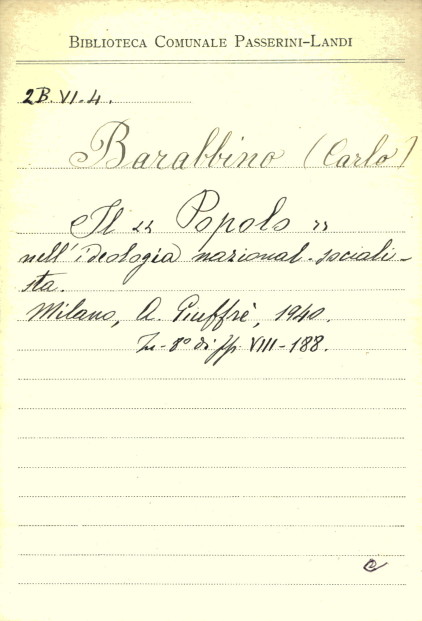 BIBLIOTECA COMUNALE PASSERINI-LANDI
2B.VI.4.
Barabbino (Carlo)
Il « Popolo »
nell'ideologia nazional-sociali-
sta.
Milano, A. Giuffrè, 1940.
In-8° di pp. VIII-188.